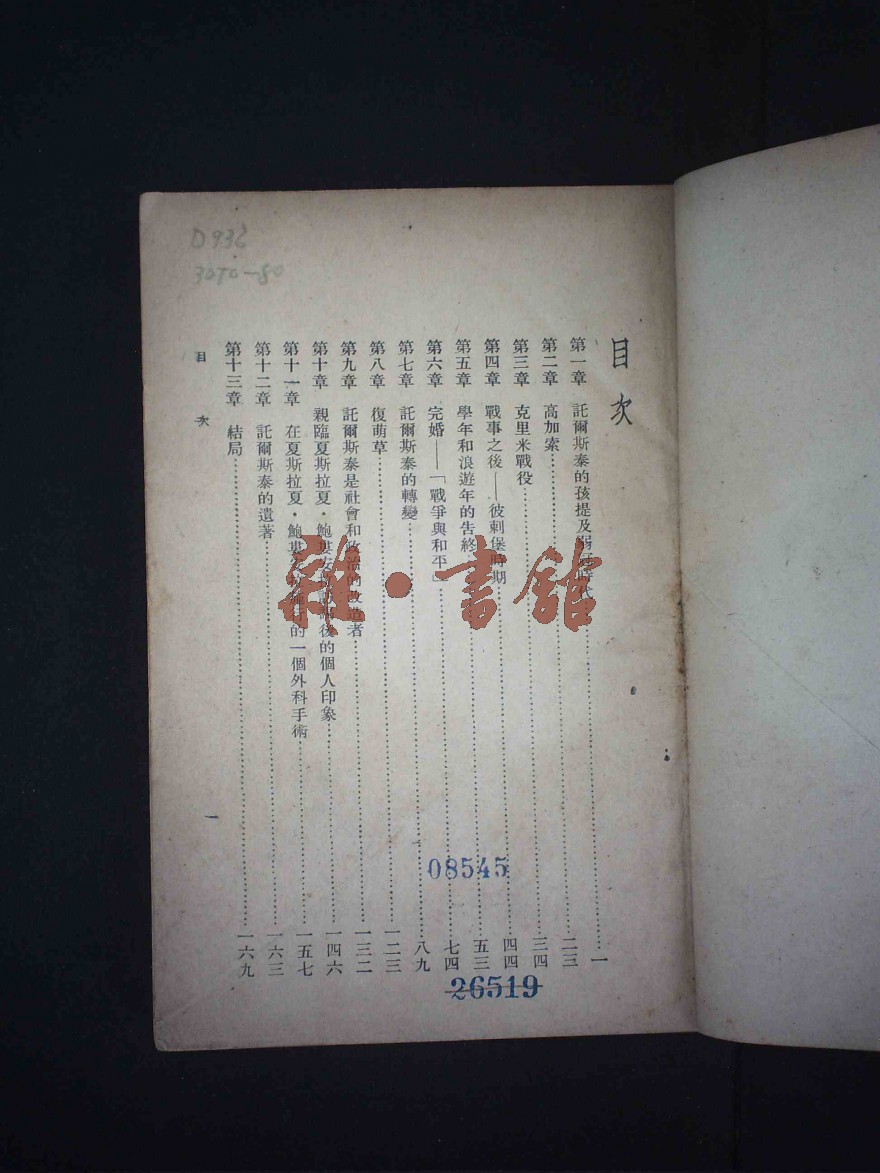 D936
3070-80
目次
第一章 託爾斯泰的孩提及 時代……一
第二章 高加索……二三
第三章 克里米戰役……三四
第四章 戰事之後——彼剌堡時期……四四
第五章 學年和浪遊年的告終……五三
第六章 完婚——「戰爭與和平」……七四
第七章 託爾斯泰的轉變……八九
第八章 復萌草……一二三
第九章 託爾斯泰是社會和政治的改造者……一三二
第十章 親臨夏斯拉夏・鮑婁 後的個人印象……一四六
第十一章 在夏斯拉夏・鮑婁 的一個外科手術……一五七
第十二章 託爾斯泰的遺著……一六三
第十三章 結局……一六九
目次
一
08545
26519
雜・書館